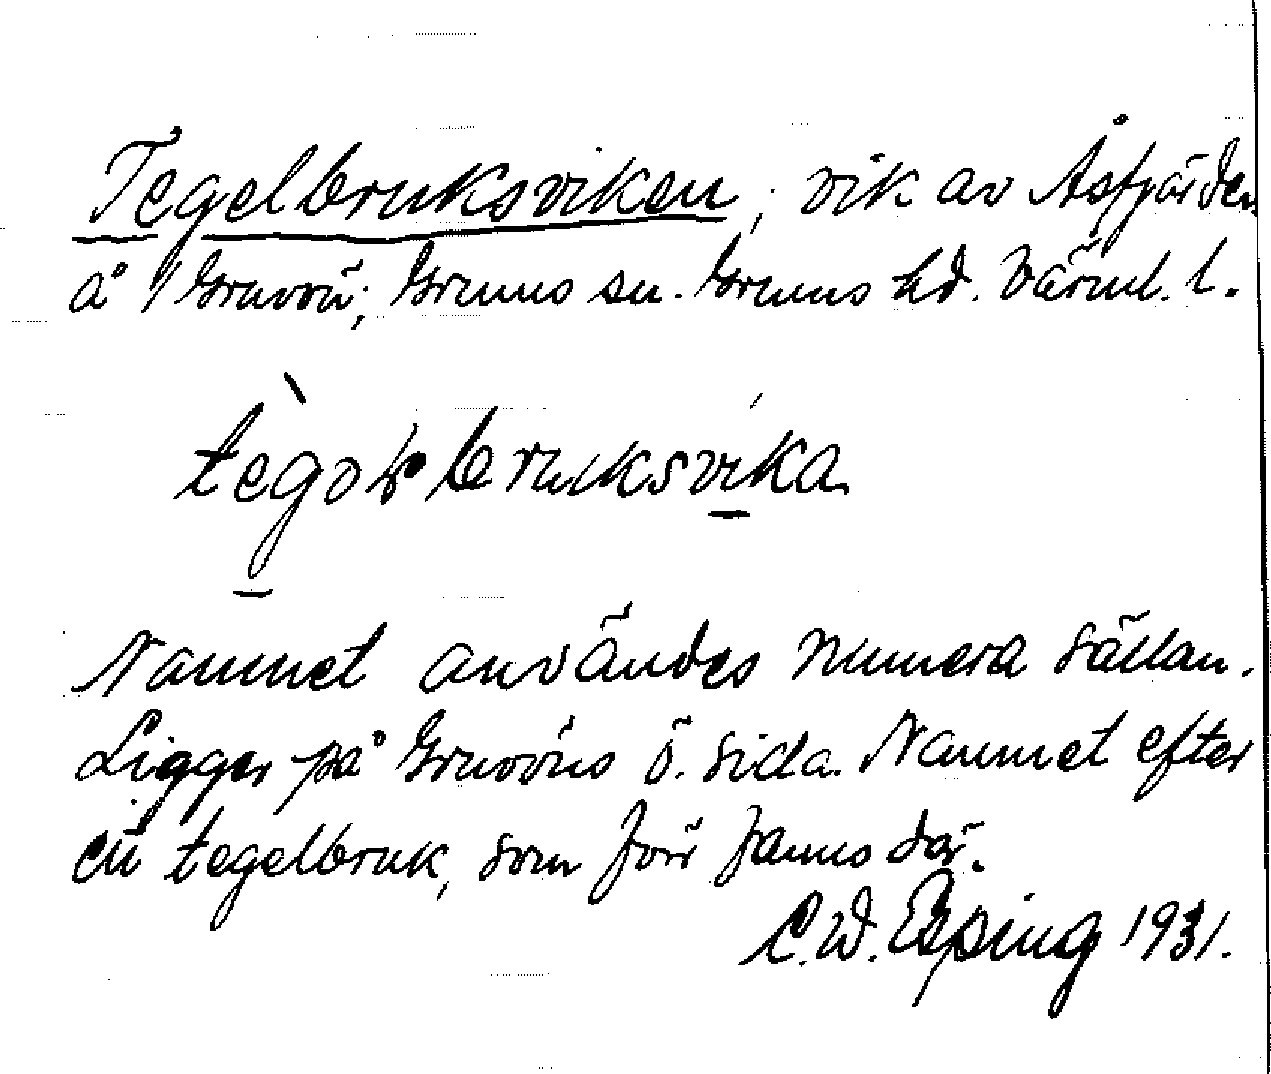 Tegelbruksviken; vik av Åsfjärden
å Gruvön; Grums sn. Grums hd. Värml. l.
tègolbruksvíka
Namnet användes numera sällan.
Ligger på Gruvöns ö. sida. Namnet efter
ett tegelbruk, som förr fanns där.
C.W. Esping 1931.